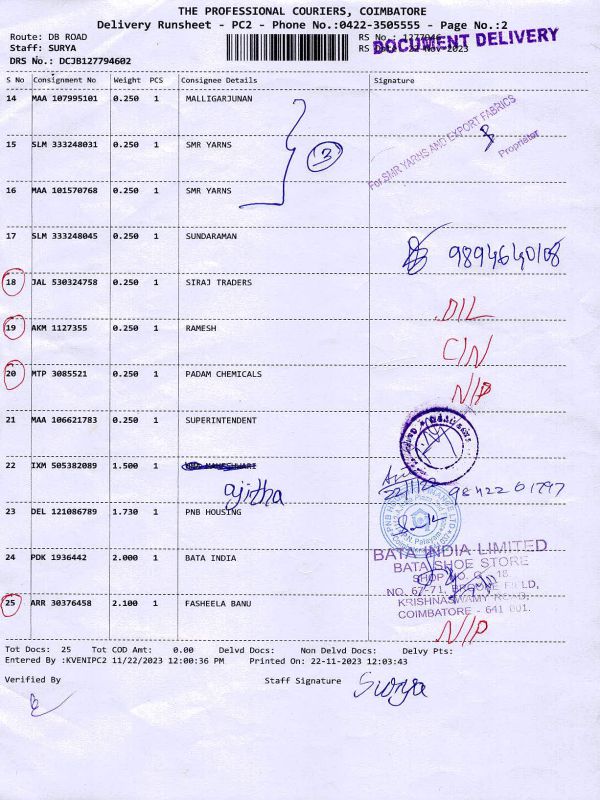 THE PROFESSIONAL COURIERS, COIMBATORE
Delivery Runsheet - PC2 - Phone No.:0422-3505555 - Page No.:2
Route: DB ROAD
RS No.:
Staff: SURYA
RS 22 Nov 2023
DOCUMENT DELIVERY
DRS No.: DCJB127794602
S No Consignment No Weight PCS Consignee Details Signature
14 MAA 107995101 0.250 1 MALLIGARJUNAN
For SMR YARNS AND EXPORT FABRICS
Proprietor
15 SLM 333248031 0.250 1 SMR YARNS
3
16 MAA 101570768 0.250 1 SMR YARNS
17 SLM 333248045 0.250 1 SUNDARAMAN
9894640108
18 JAL 530324758 0.250 1 SIRAJ TRADERS
D/L
19 AKM 1127355 0.250 1 RAMESH
C/N
20 MTP 3085521 0.250 1 PADAM CHEMICALS
N/P
21 MAA 106621783 0.250 1 SUPERINTENDENT
22 IXM 505382089 1.500 1
ajitha
22/11/22 9842201797
23 DEL 121086789 1.730 1 PNB HOUSING
24 PDK 1936442 2.000 1 BATA INDIA
BATA INDIA LIMITED
BATA SHOE STORE
SHOP NO. G - 18
NO. 67-71, BROOKE FIELD,
KRISHNASWAMY ROAD,
COIMBATORE - 641 001.
25 ARR 30376458 2.100 1 FASHEELA BANU
N/P
Tot Docs: 25 Tot COD Amt: 0.00 Delvd Docs: Non Delvd Docs: Delvy Pts:
Entered By :KVENIPC2 11/22/2023 12:00:36 PM Printed On: 22-11-2023 12:03:43
Verified By Staff Signature Surya